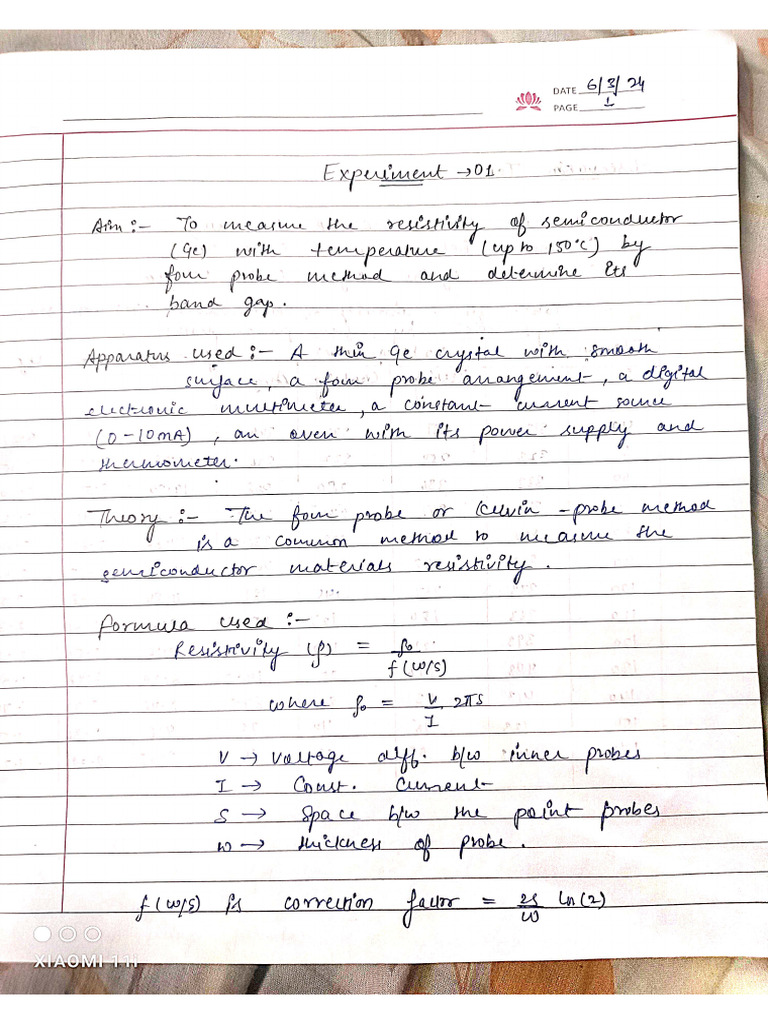 DATE 6/3/24
PAGE 1
Experiment →01
Aim :- To measure the resistivity of semiconductor
(Ge) with temperature (up to 150°C) by
four probe method and determine its
band gap.
Apparatus used :- A thin Ge crystal with smooth
surface, a four probe arrangement, a digital
electronic multimeter, a constant current source
(0-10mA), an oven with its power supply and
thermometer.
Theory :- The four probe or Kelvin-probe method
is a common method to measure the
semiconductor materials resistivity.
Formula used :-
Resistivity (ρ) = ρ₀/f(w/s)
where ρ₀ = V/I 2πs
V → Voltage diff. b/w inner probes
I → Const. Current
S → Space b/w the point probes
w → thickness of probe.
f(w/s) is correction factor = 2s/w ln(2)
XIAOMI 11i